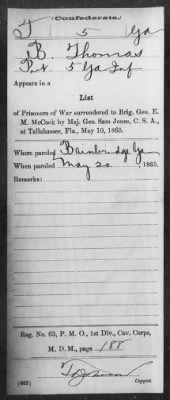 Confederate.
T 5 Ga
B. Thomas
Pvt. 5 Ga Inf
Appears in a
List
of Prisoners of War surrendered to Brig. Gen. E.
M. McCook by Maj. Gen. Sam Jones, C. S. A.,
at Tallahassee, Fla., May 10, 1865.
Where paroled Bainbridge Ga
When paroled May 20, 1865.
Remarks:
Reg. No. 63, P. M. O., 1st Div., Cav. Corps,
M. D. M., page 188
Copyist.